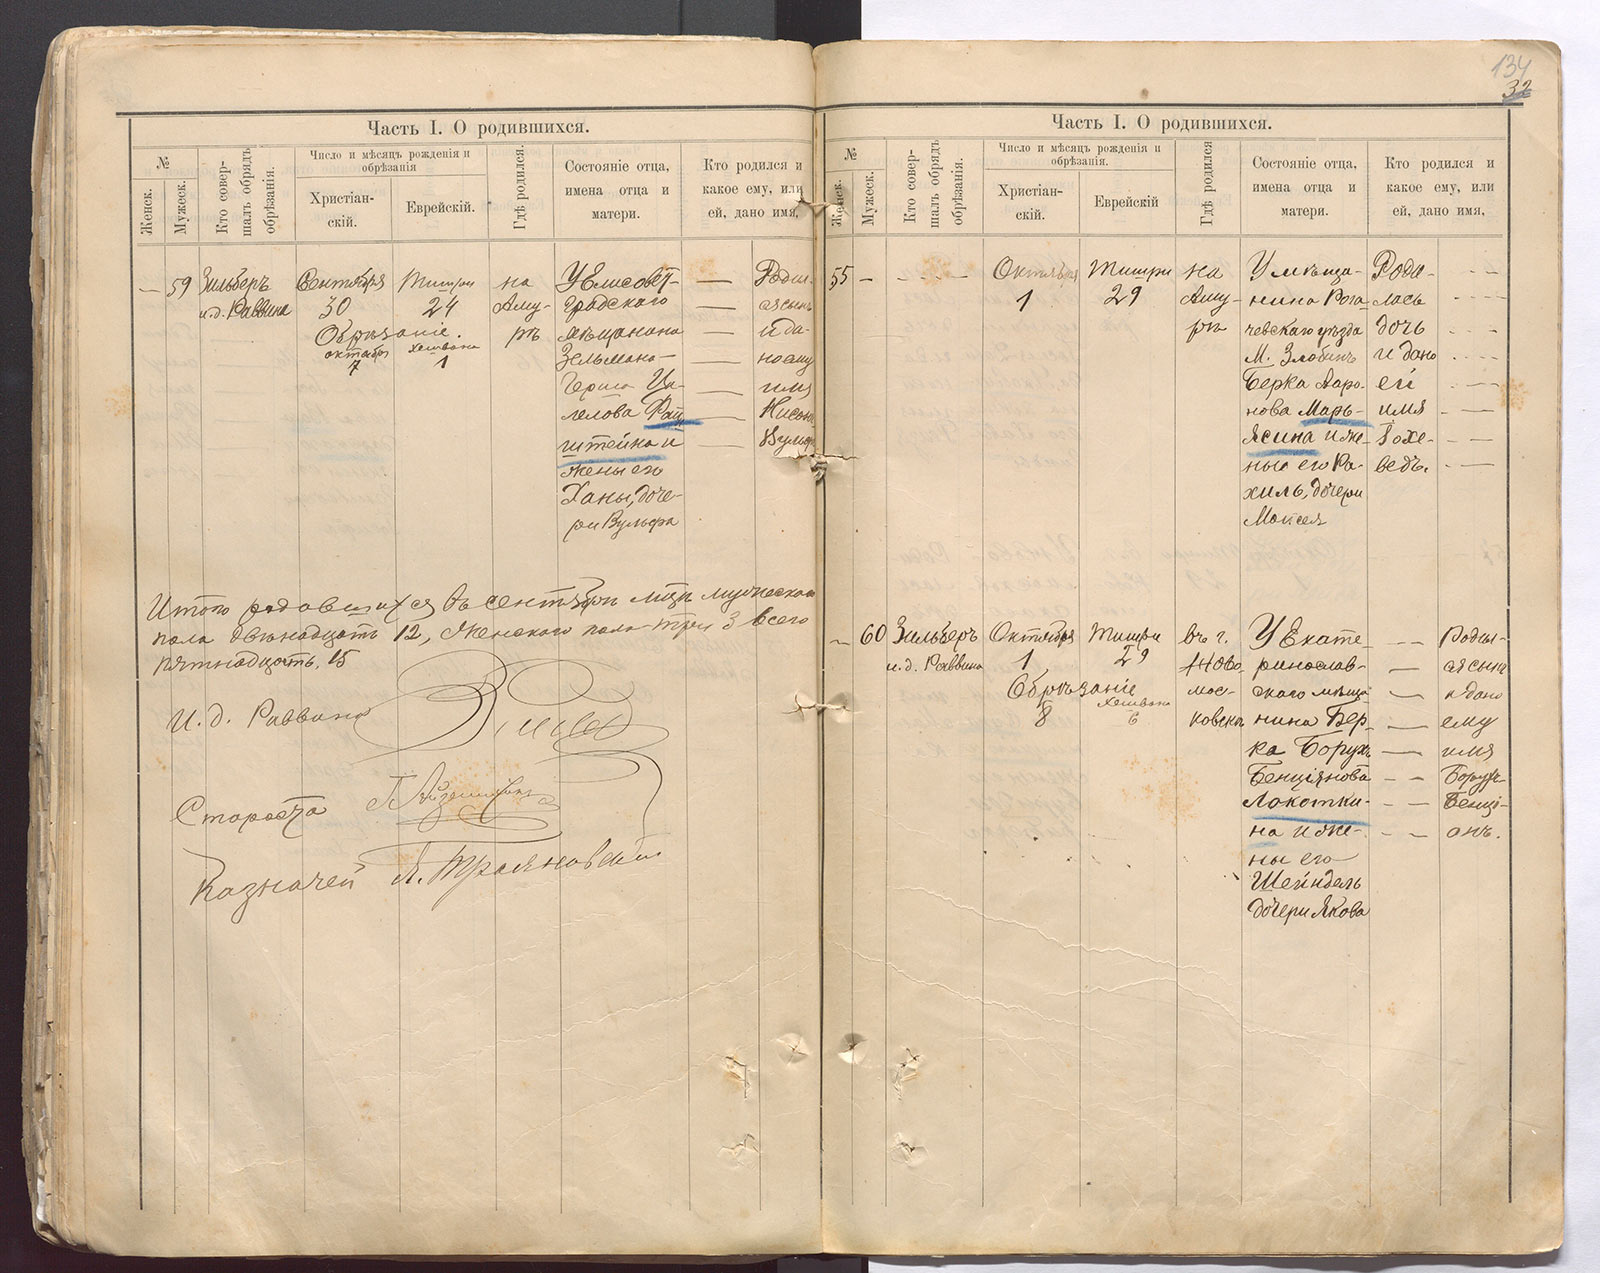 134
32
Часть I. О родившихся.
№
Женск.
Мужеск.
Кто совер-
шалъ обрядъ
обрѣзанія.
Число и мѣсяцъ рожденія и
обрѣзанія
Христіан-
скій.
Еврейскій.
Гдѣ родился.
Состояніе отца,
имена отца и
матери.
Кто родился и
какое ему, или
ей, дано имя,
— 59
Зильберъ
и.д. Раввина
Сентября
30
Тишри
24
Обрѣзаніе.
октября
7
Хешвана
1
на
Аму-
рѣ
У Елисовет-
градскаго
мѣщанина
Зельмана-
Герша
гелова
штейна и
жены его
Ханы, доче-
ри Вульфа
Родил-
ся сынъ
и да-
но ему
имя
Нисонъ
Вульфъ
Итого родовшихся въ сентябрѣ мцѣ мужескаго
пола двѣнадцать 12, женского пола три 3 всего
пятнадцать, 15
И. д. Раввина
Староста
Казначей А. Трояновскій
Часть I. О родившихся.
№
Женск.
Мужеск.
Кто совер-
шалъ обрядъ
обрѣзанія.
Число и мѣсяцъ рожденія и
обрѣзанія.
Христіан-
скій.
Еврейскій
Гдѣ родился
Состояніе отца,
имена отца и
матери.
Кто родился и
какое ему, или
ей, дано имя,
55 —
Октября
1
Тишри
29
на
Аму-
рѣ
У мѣща-
нина Рога-
чевскаго уѣзда
М. Злобинъ
Берка Ааро-
нова Марь-
ясина и же-
ны его Ра-
хиль, дочери
Моисея
Роди-
лась
дочь
и дано
ей
имя
Іохе-
ведъ.
— 60
Зильберъ
и.д. Раввина
Октября
1
Тишри
29
Обрѣзаніе
8
Хешвана
6
въ г.
Ново-
мос-
ковскѣ
У Екате-
ринослав-
скаго мѣща-
нина Бер-
ка Борухъ
Бенціянова
Локотки-
на и же-
ны его
Шейндель
дочери Якова
Родил-
ся сынъ
и дано
ему
имя
Борухъ-
Бенці-
онъ.